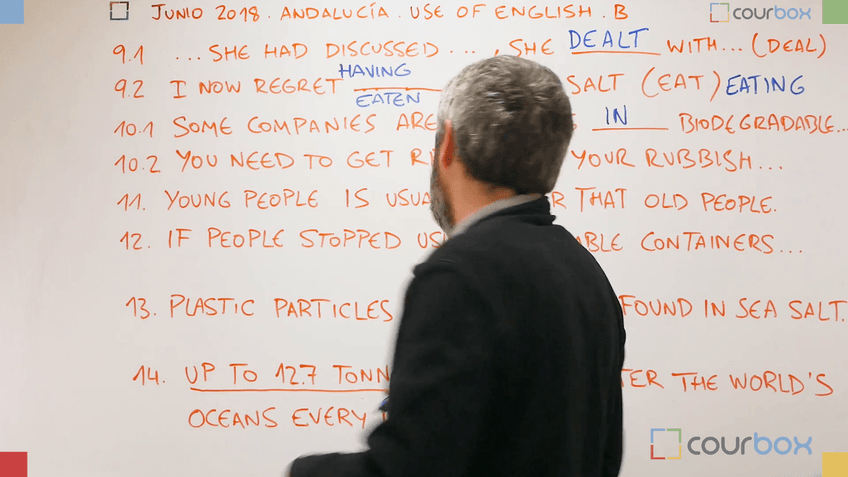 JUNIO 2018. ANDALUCÍA. USE OF ENGLISH. B
courbox
9.1 ... SHE HAD DISCUSSED ... , SHE DEALT WITH... (DEAL)
9.2 I NOW REGRET HAVING EATEN SALT (EAT) EATING
10.1 SOME COMPANIES ARE IN BIODEGRADABLE...
10.2 YOU NEED TO GET YOUR RUBBISH...
11. YOUNG PEOPLE IS THAT OLD PEOPLE.
12. IF PEOPLE STOPPED CONTAINERS...
13. PLASTIC PARTICLES FOUND IN SEA SALT.
14. UP TO 12.7 THE WORLD'S
OCEANS EVERY
courbox